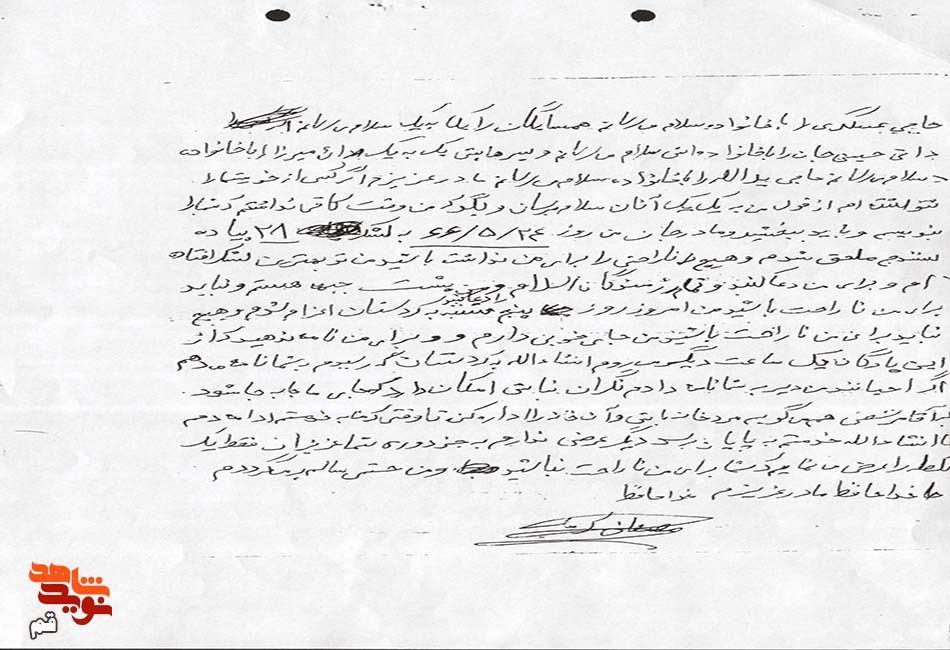 حاجی عسگری را با خانواده سلام می رسانم همسایگان را یکا یک سلام می رسانم
دائی حسین جان را با خانواده اش سلام می رسانم و پسرهایش یک به یک میرزا را با خانواده
سلام می رسانم حاجی ابوالفضل را با خانواده سلام می رسانم مادر عزیزم اگر کسی از خویشان را
نتوانسته ام از قول من به یک یک آنان سلام برسان و بگو که من وقت کافی نداشتم که شما را
بنویسم و باید ببخشید و مادر جان من روز ۶۶/۵/۲۴ به لشکر ۲۸ پیاده
سنندج ملحق شدم و هیچ ناراحتی را برای من نداشته باشید من تو بهترین لشکر افتاده
ام و برای من دعا کنید و تمام رزمندگان اسلام و من پشت جبهه هستم و نباید
برای من ناراحت باشید من امروز روز پنج شنبه به کردستان اعزام شدم و هیچ
نباید برای من ناراحت باشید من جای خوبی دارم و برای من نامه ندهید که از
این پادگان یک ساعت دیگر می روم انشاءالله به کردستان که رسیدم به شما نامه می دهم
اگر احیانا من دیر به شما نامه دادم نگران نباش امکان دارد که جای ما جابجا شود
به آقا مرتضی هم بگو به مرد خانه باش و آن خانه را اداره کن تا وقتی که من خدمتم ادامه دهم
تا انشاءالله خدمتم به پایان برسد دیگر عرضی ندارم به جز دوری شما عزیزان فقط یک
کلمه را عرض می نمایم که شما برای من ناراحت نباشید و من حتی سالم برمیگردم
خداحافظ مادر عزیزم خداحافظ
نوید شاهد
قم